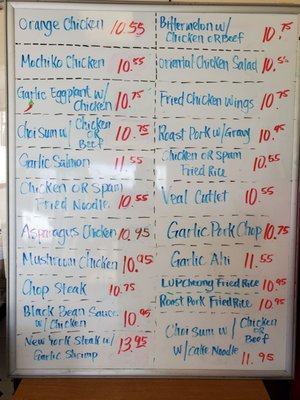 Orange Chicken 10.55
Mochiko Chicken 10.55
Garlic Eggplant w/
Chicken 10.75
Choi Sum w/ Chicken 10.75
OR
Beef
Garlic Salmon 11.55
Chicken OR Spam
Fried Noodle 10.55
Asparagus Chicken 10.95
Mushroom Chicken 10.95
Chop Steak 10.75
Black Bean Sauce
w/ Chicken 10.95
New York Steak w/
Garlic Shrimp 13.95
Bittermelon w/
Chicken OR Beef 10.75
Oriental Chicken Salad 10.55
Fried Chicken Wings 10.75
Roast Pork w/ Gravy 10.95
Chicken OR Spam
Fried Rice 10.55
Veal Cutlet 10.55
Garlic Pork Chop 10.75
Garlic Ahi 11.55
LUP Cheong Fried Rice 10.95
Roast Pork Fried Rice 10.95
Choi Sum w/ Chicken
OR
Beef
w/ Cake Noodle 11.95